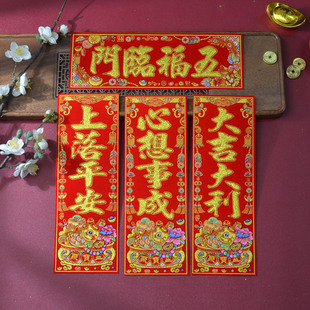 門臨福五
上落平安
心想事成
大吉大利